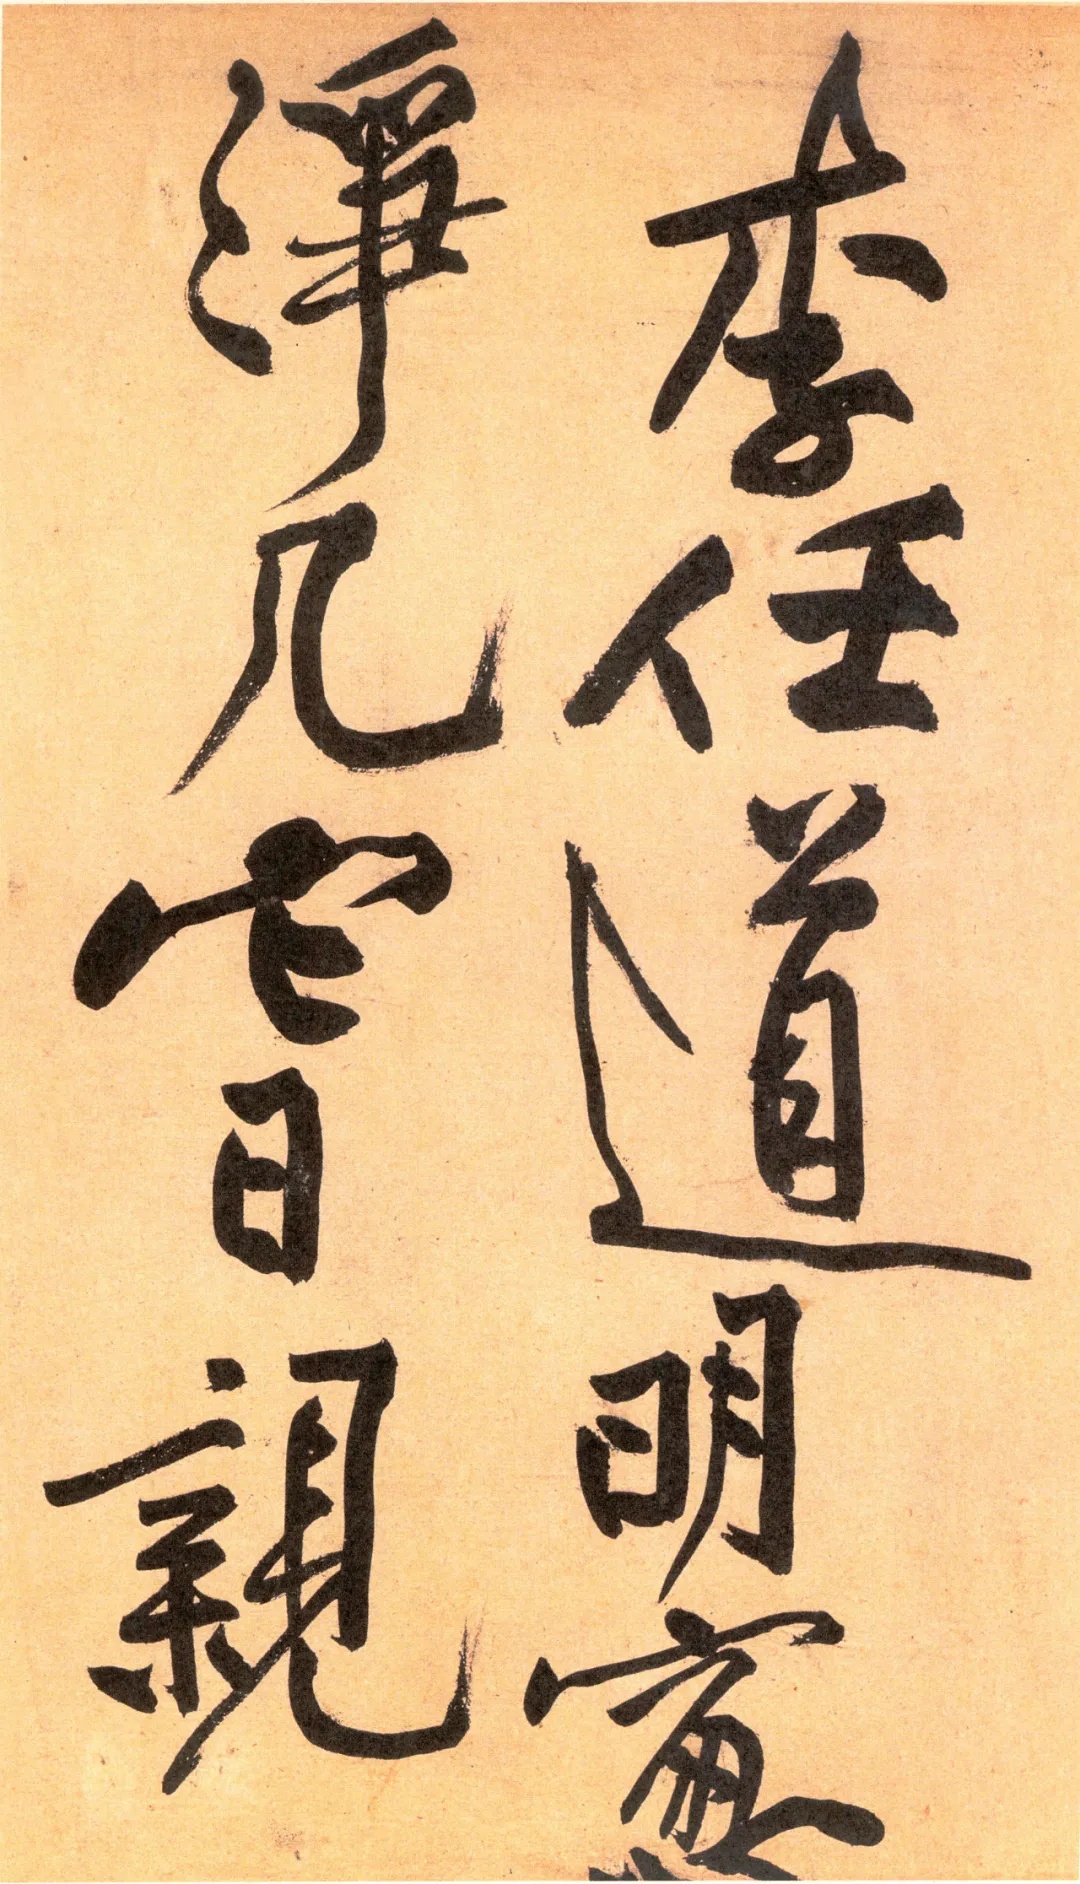 李任道明窻
淨几它日親